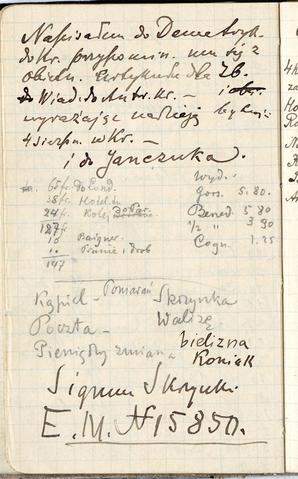 Napisałem do Demetryk.
do Kr. przypomin. mu się z
obietn. Artykułu dla Zb.
do Wiad. do Antr. Kr. – i
wyrażając nadzieję być
4 sierpn. w Kr. –
i do Janczuka.
65 fr. do Lond. Wyd.:
28 fr. Hotel. gors. 5.80.
24 fr. Kolej do Par. Bened. 5 80
127 fr. 1/2 " 3 90
10 Baigner. Cogn. 1.25
10 Pranie i drob
147
Kąpiel – Pomarań Skrzynka
Poczta – Walizę
Pieniędzy zmiana bielizna
Koniak
Signum Skrzynki
E. M. N 15850.